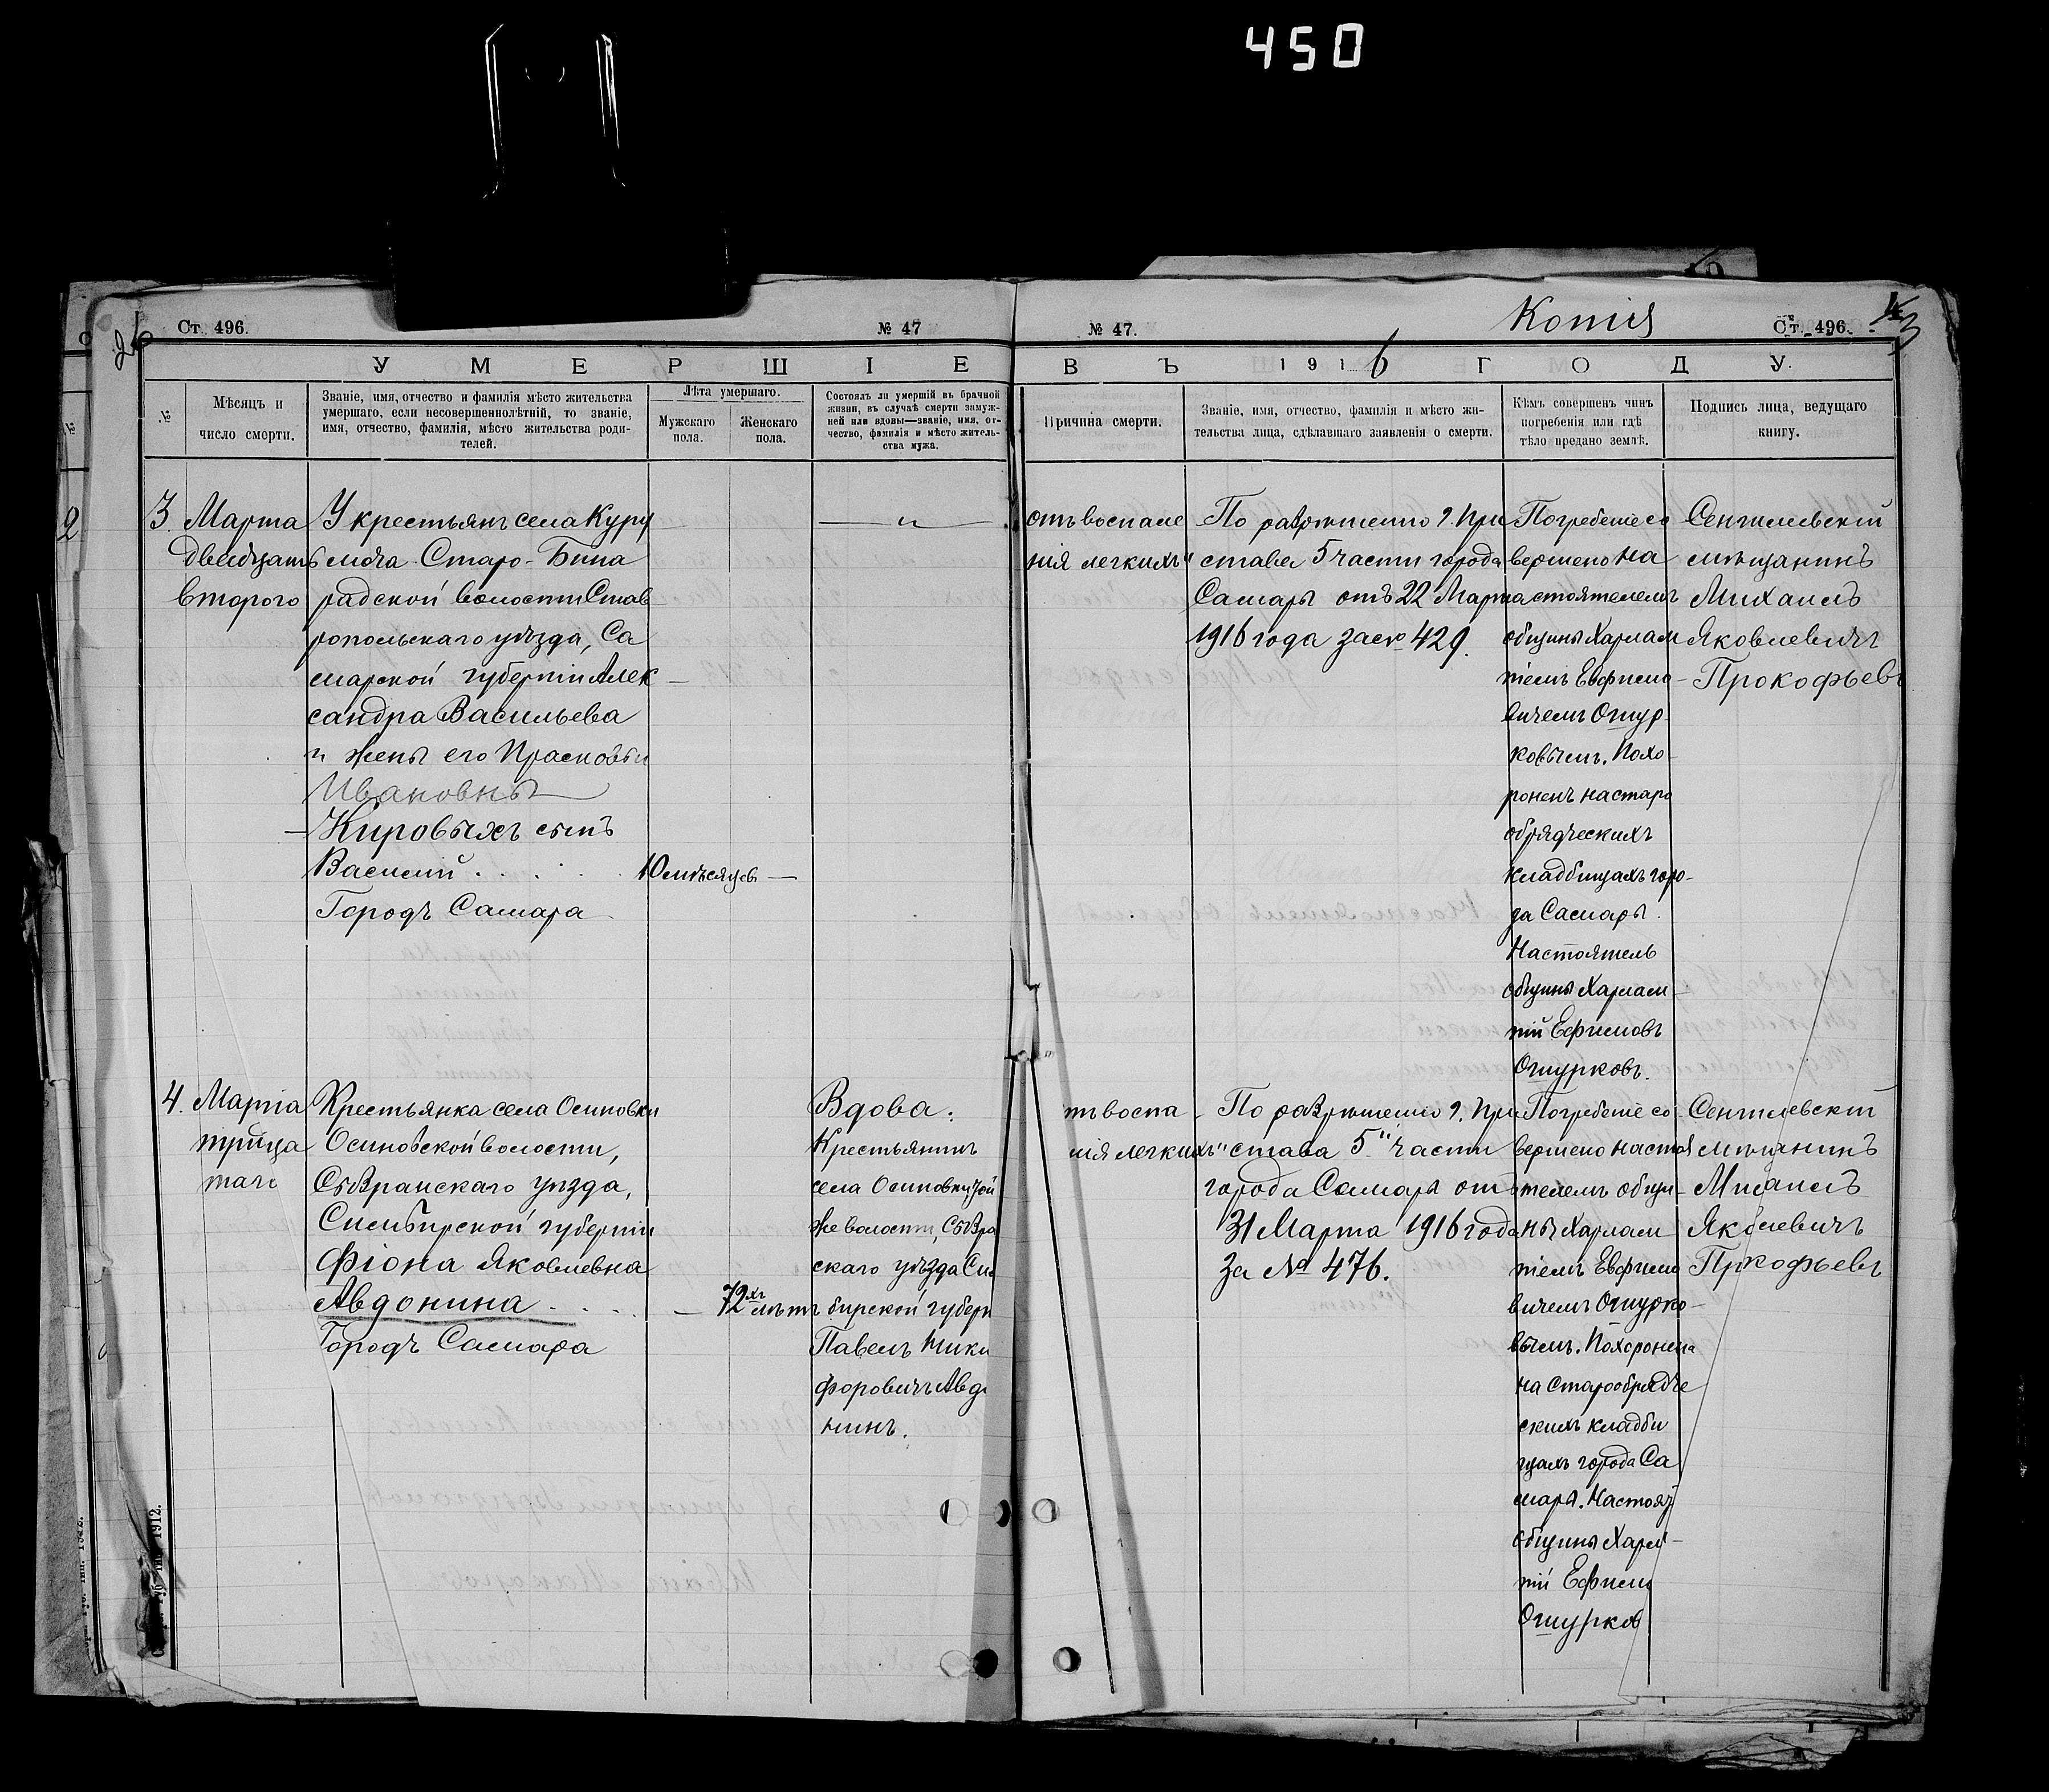 450
Копія
Ст. 496.
№ 47
№ 47.
Ст. 496.
УМЕРШІЕ
ВЪ 1916 ГОДУ.
№
Мѣсяцъ и
число смерти.
Званіе, имя, отчество и фамилія мѣсто жительства
умершаго, если несовершеннолѣтній, то званіе,
имя, отчество, фамилія, мѣсто жительства роди-
телей.
Лѣта умершаго.
Мужскаго
пола.
Женскаго
пола.
Состоялъ ли умершій въ брачной
жизни, въ случаѣ смерти замуж-
ней или вдовы—званіе, имя, от-
чество, фамилія и мѣсто житель-
ства мужа.
Причина смерти.
Званіе, имя, отчество, фамилія и мѣсто жи-
тельства лица, сдѣлавшаго заявленія о смерти.
Кѣмъ совершенъ чинъ
погребенія или гдѣ
тѣло предано землѣ.
Подпись лица, ведущаго
книгу.
2
3. Марта
двадцать
второго
У крестьянъ села Куру
моча Старо-Бина
радской волости Став
ропольскаго уѣзда, Са
марской губерніи Алек
сандра Васильева
и жены его Прасковьи
Ивановны
Кировыхъ сынъ
Василій . . . . .
Городъ Самара
10 мѣсяцевъ —
— „ —
отъ воспале
нія легкихъ"
По разрѣшенію г. При
става 5 части города
Самары отъ 22 Марта
1916 года за № 429.
Погребеніе со
вершено на
стоятелемъ
общины Харлам
піемъ Евфимо
вичемъ Ошур
ковымъ. Похо
роненъ на старо
обрядческихъ
кладбищахъ горо-
да Самары.
Настоятель
общины Харлам-
пій Ефимовъ
Ошурковъ.
Сенгилевскій
мѣщанинъ
Михаилъ
Яковлевичъ
Прокофьевъ
4. Марта
тридца
таго
Крестьянка села Осиновки
Осиновской волости,
Сызранскаго уѣзда,
Симбирской губерніи
Фіона Яковлевна
Авдонина . . . .
Городъ Самара
— 72хъ лѣтъ
Вдова:
Крестьянинъ
села Осиновки той
же волости, Сызра
скаго уѣзда Си
бирской губерн
Павелъ Ники
форовичъ Авдо
нинъ.
тъ воспа
нія легкихъ"
По разрѣшенію г. При
става 5" части
города Самары отъ
31 Марта 1916 года
За № 476.
Погребеніе со
вершено настоя
телемъ общи-
ны Харлам
піемъ Евфимо
вичемъ Ошурко-
вымъ. Похоронена
на старообрядче
скихъ кладби
щахъ города Са
мары. Настоят
общины Харла-
пій Ефимо
Ошурков
Сенгилевскій
мѣщанинъ
Михаилъ
Яковлевичъ
Прокофьевъ
1912.